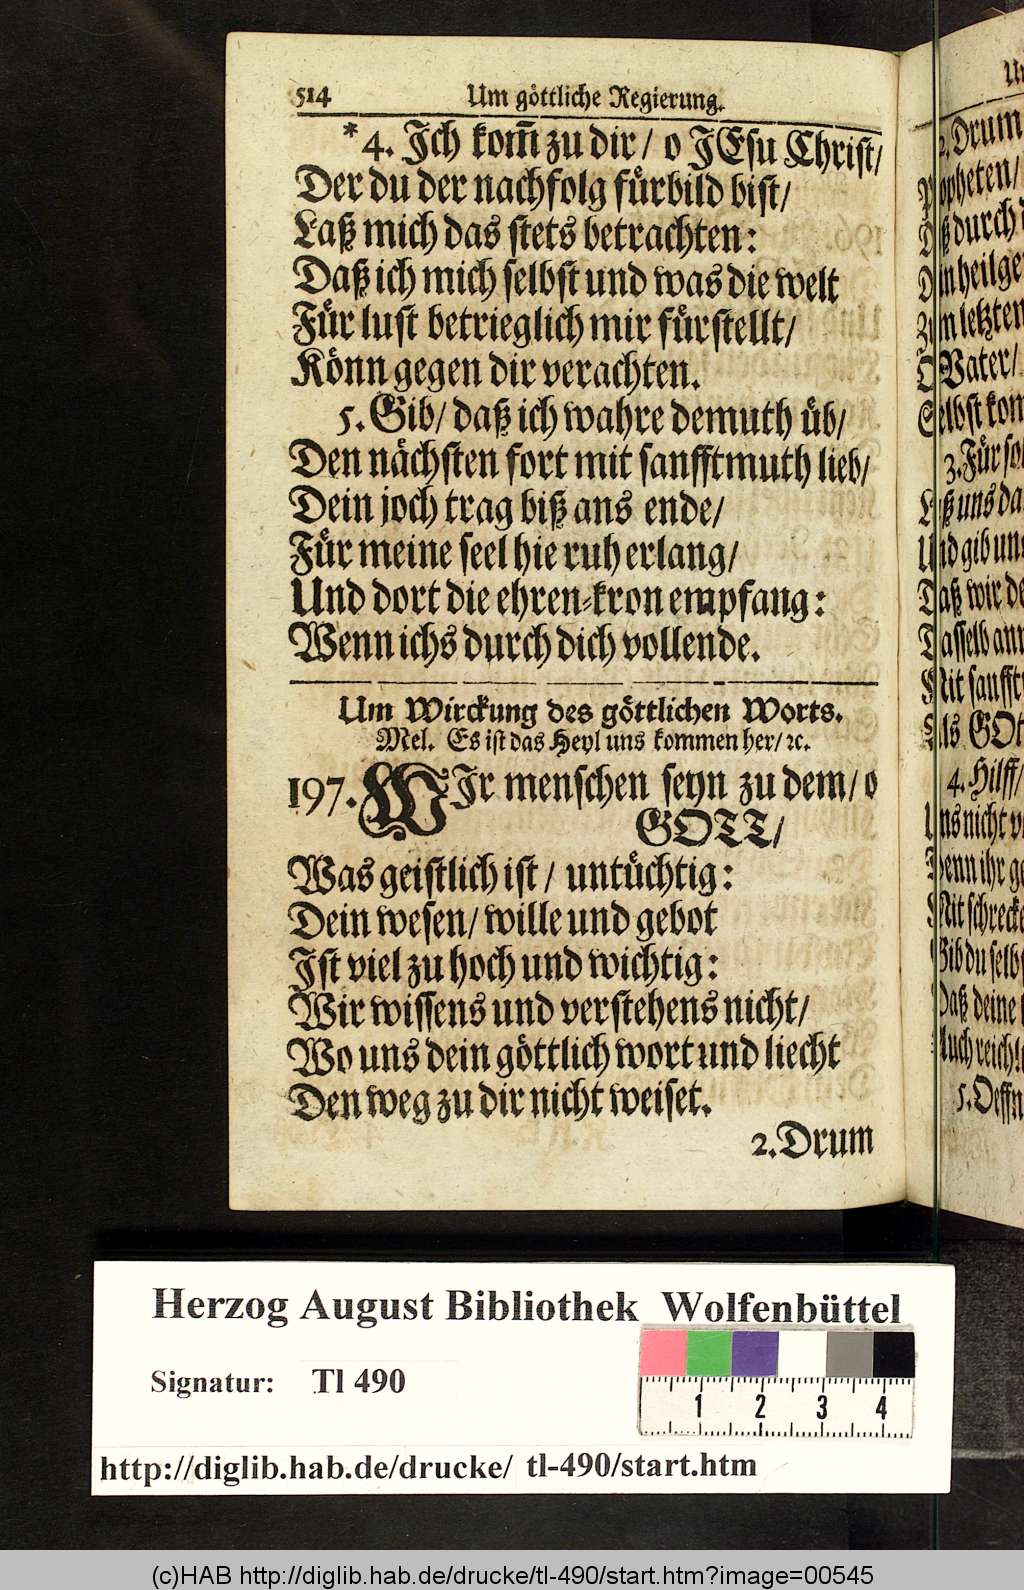 514 Um göttliche Regierung.
*4. Ich kom̃ zu dir/ o JEsu Christ/
Der du der nachfolg fürbild bist/
Laß mich das stets betrachten:
Daß ich mich selbst und was die welt
Für lust betrieglich mir fürstellt/
Könn gegen dir verachten.
5. Gib/ daß ich wahre demuth üb/
Den nächsten fort mit sanfftmuth lieb/
Dein joch trag biß ans ende/
Für meine seel hie ruh erlang/
Und dort die ehren-kron empfang:
Wenn ichs durch dich vollende.
Um Wirckung des göttlichen Worts.
Mel. Es ist das Heyl uns kommen her/ ꝛc.
197. WIr menschen seyn zu dem/ o
GOTT/
Was geistlich ist/ untüchtig:
Dein wesen/ wille und gebot
Ist viel zu hoch und wichtig:
Wir wissens und verstehens nicht/
Wo uns dein göttlich wort und liecht
Den weg zu dir nicht weiset.
2. Drum
2. Drum
Propheten/
durch
letzten
Vater/
3. Für
uns
gib
Daß wir
Dasselb
Mit
Als
4. Hilff/
nicht
Denn ihr
Gib du
Daß deine
5. Oeffn
Herzog August Bibliothek Wolfenbüttel
Signatur: Tl 490
1 2 3 4
http://diglib.hab.de/drucke/ tl-490/start.htm
(c)HAB http://diglib.hab.de/drucke/tl-490/start.htm?image=00545